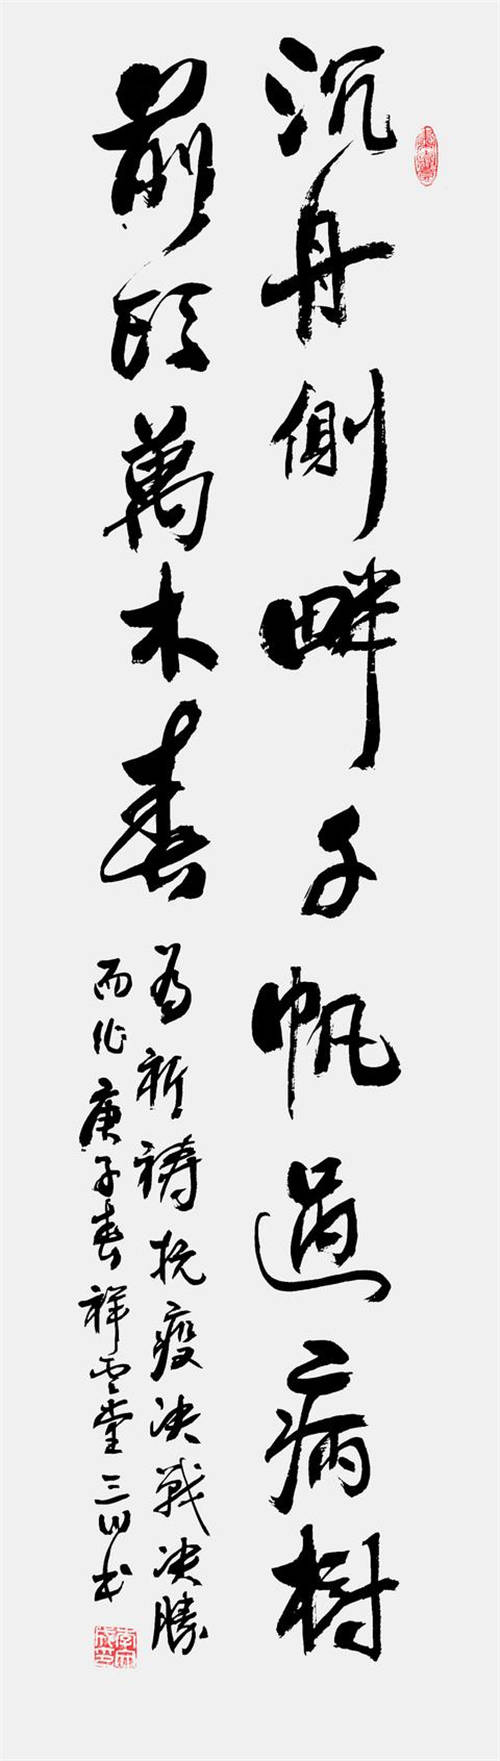 沉舟侧畔千帆過病樹
前頭萬木春
為祈禱抗疫决戰决勝
而作庚子春祥雲堂三山书